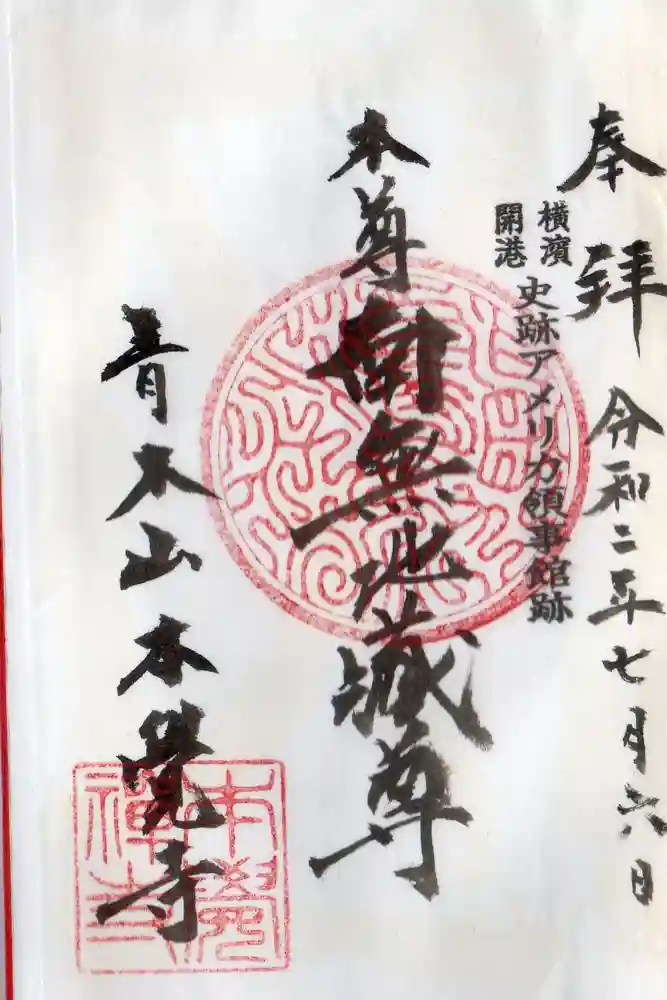 奉拝 令和二年七月六日
横濱
開港
史跡アメリカ領事館跡
本尊 南無地蔵尊
青木山本覺寺
本覺
禅寺